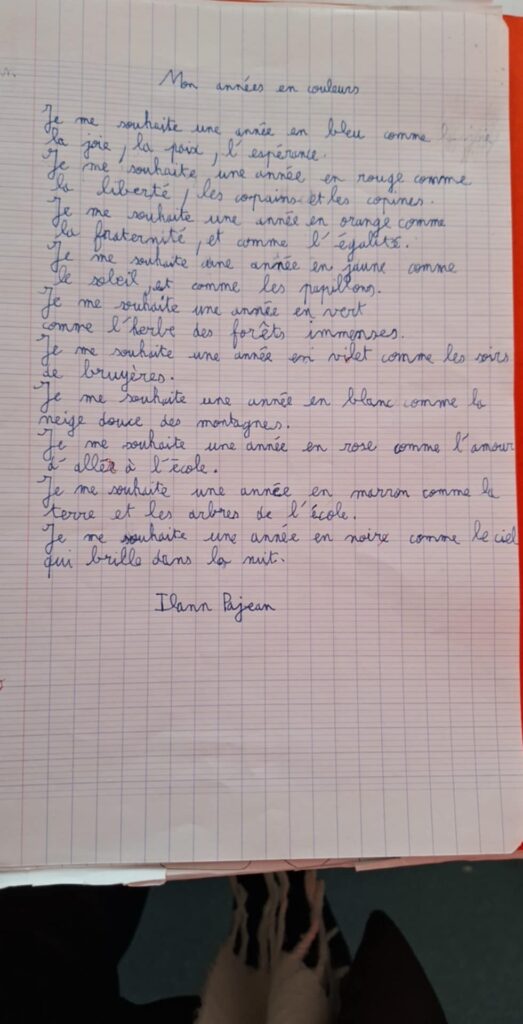 Mon années en couleurs
Je me souhaite une année en bleu comme
la joie, la paix, l'espérance.
Je me souhaite une année en rouge comme
la liberté, les copains et les copines.
Je me souhaite une année en orange comme
la fraternité, et comme l'égalité.
Je me souhaite une année en jaune comme
le soleil, et comme les papillons.
Je me souhaite une année en vert
comme l'herbe des forêts immenses.
Je me souhaite une année en vilet comme les soirs
de bruyères.
Je me souhaite une année en blanc comme la
neige douce des montagnes.
Je me souhaite une année en rose comme l'amour
d'aller à l'école.
Je me souhaite une année en marron comme la
terre et les arbres de l'école.
Je me souhaite une année en noire comme le ciel
qui brille dans la nuit.
Ilann Pajean